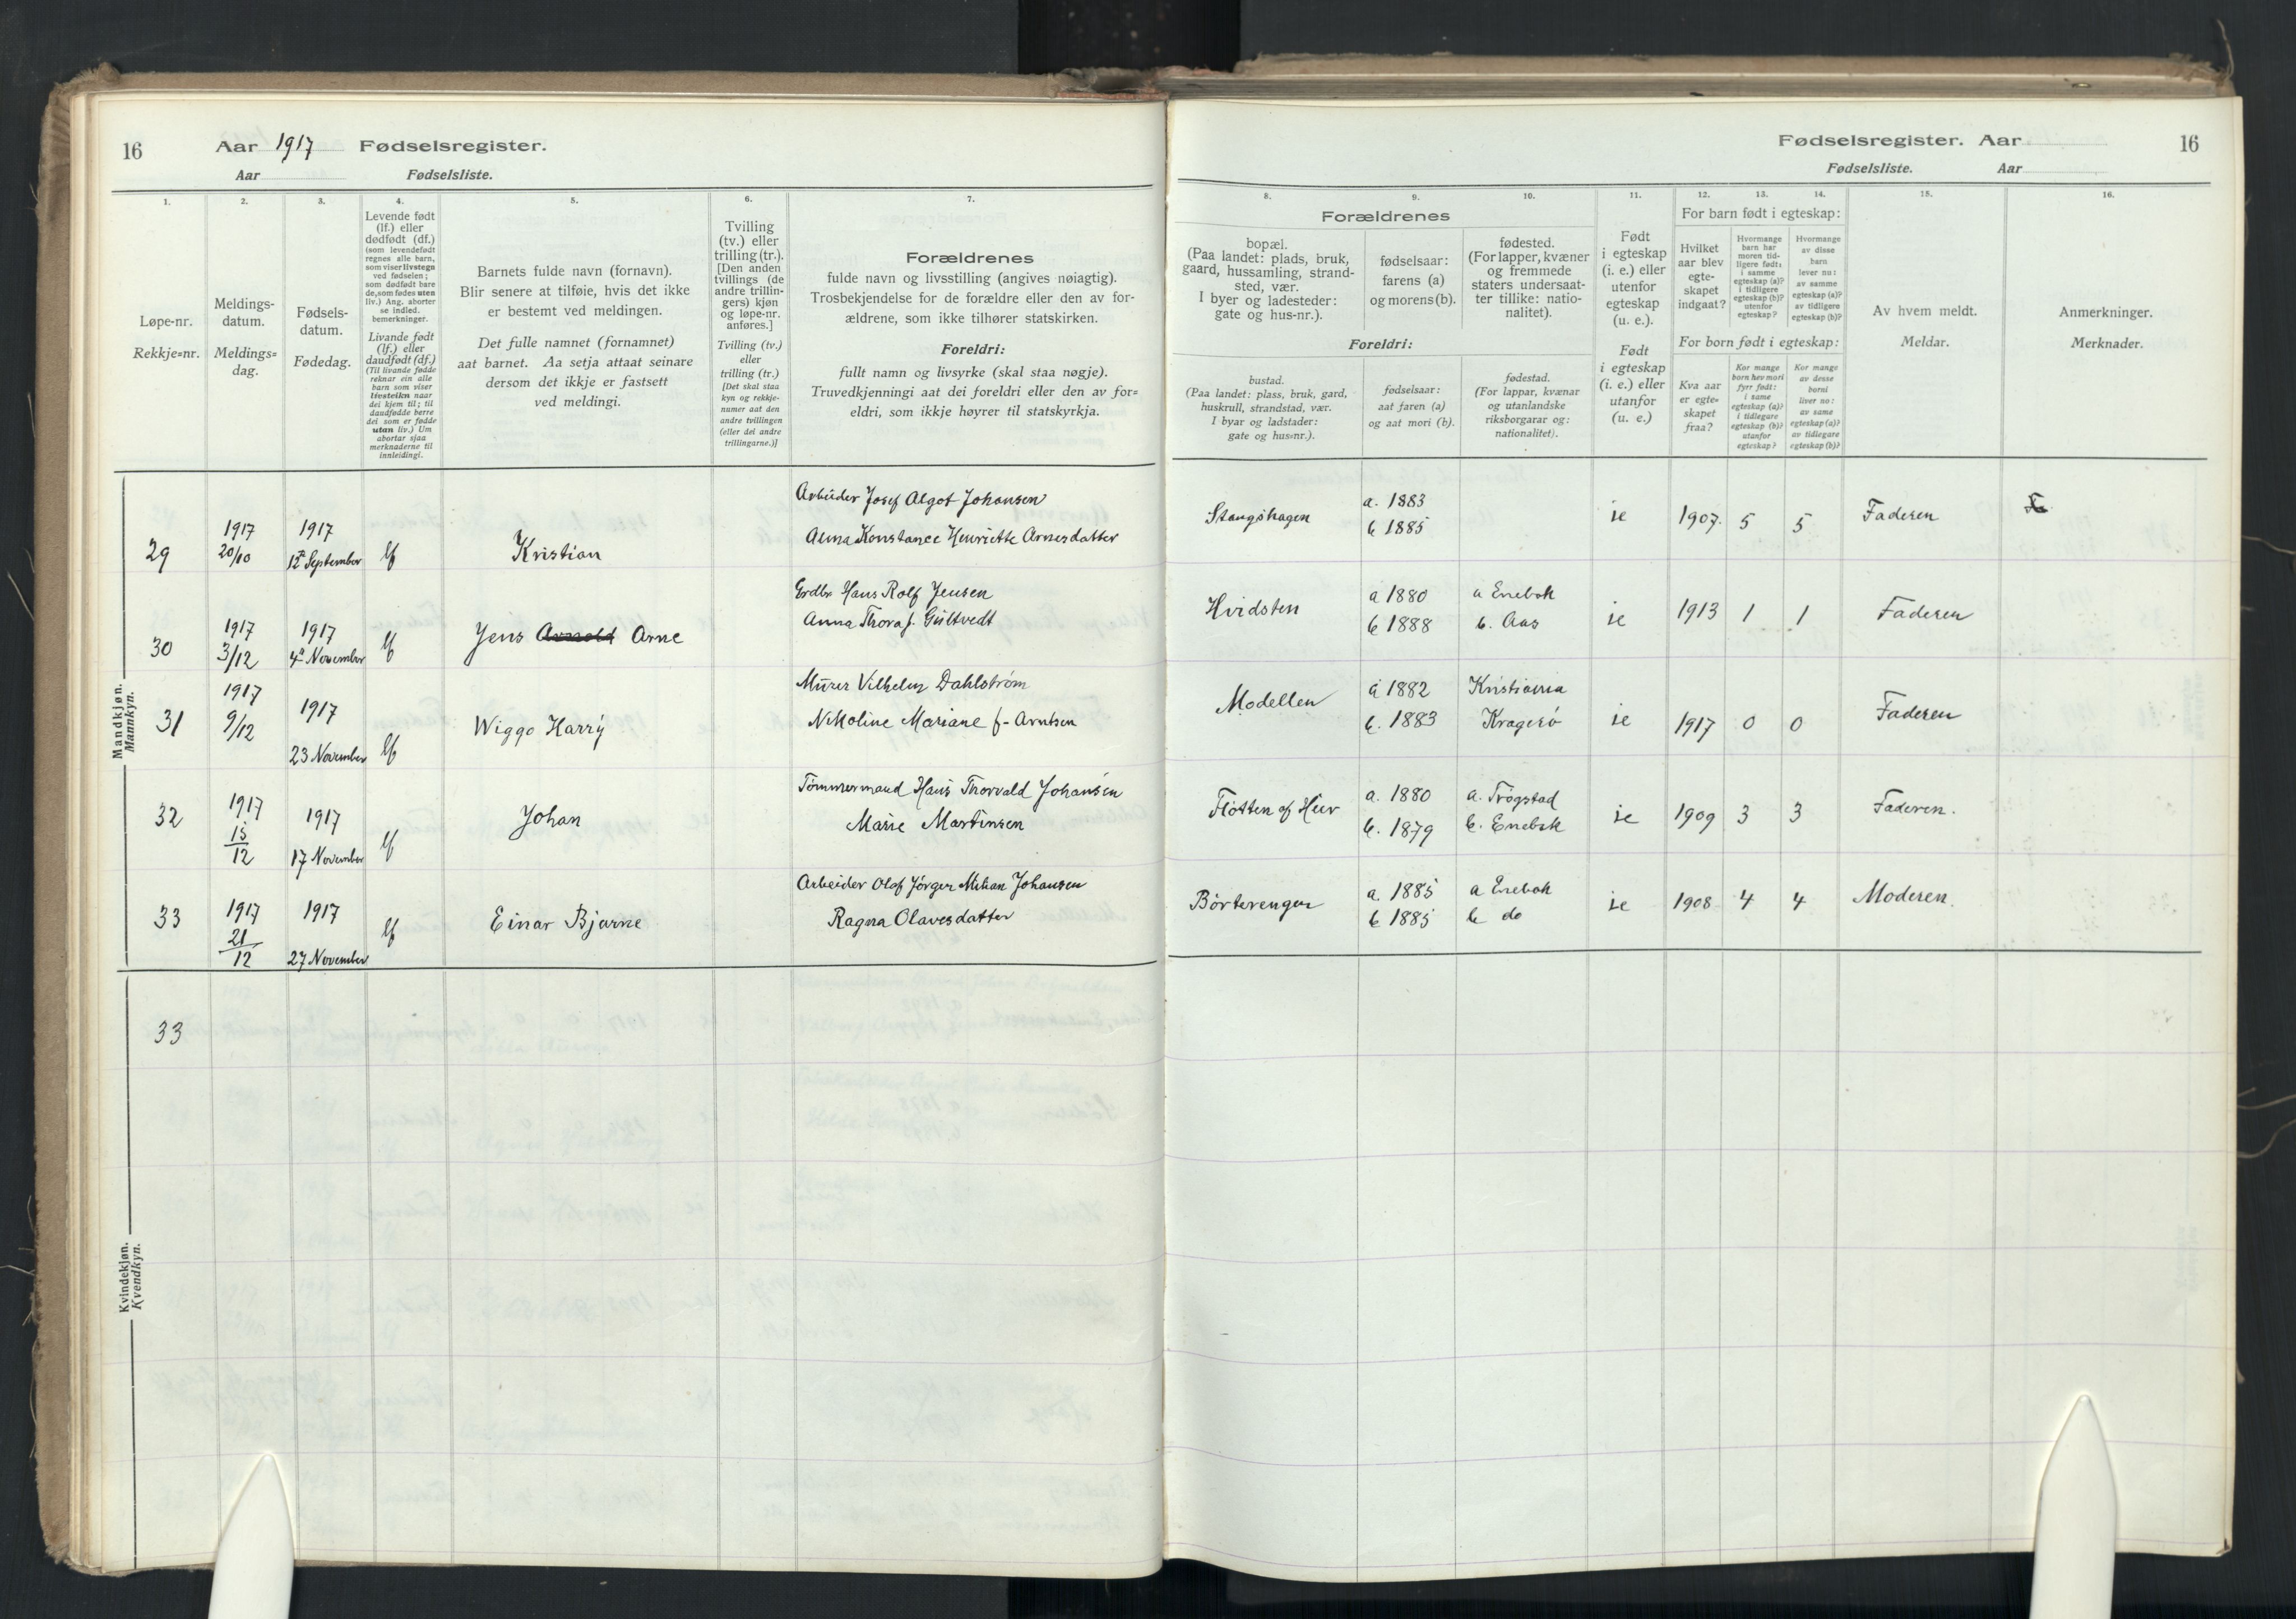 16
Aar 1917 Fødselsregister.
Aar Fødselsliste.
1.
Løpe-nr.
Rekkje=nr.
2.
Meldings-
datum.
Meldings=
dag.
3.
Fødsels-
datum.
Fødedag.
4.
Levende født
(lf.) eller
dødfødt (df.)
(som levendefødt
regnes alle barn,
som viser livstegn
ved fødselen;
som dødfødt bare
de, som fødes uten
liv.) Ang. aborter
se indled.
bemerkninger.
Livande født
(lf.) eller
daudfødt (df.)
(Til livande fødde
reknar ein alle
barn som viser
livsteikn naar
dei kjem til; til
daudfødde berre
dei som er fødde
utan liv.) Um
abortar sjaa
merknaderne til
innleidingi.
5.
Barnets fulde navn (fornavn).
Blir senere at tilføie, hvis det ikke
er bestemt ved meldingen.
Det fulle namnet (fornamnet)
aat barnet. Aa setja attaat seinare
dersom det ikkje er fastsett
ved meldingi.
6.
Tvilling
(tv.) eller
trilling (tr.).
[Den anden
tvillings (de
andre trillin-
gers) kjøn
og løpe-nr.
anføres.]
Tvilling (tv.)
eller
trilling (tr.)
[Det skal staa
kyn og rekkje-
numer aat den
andre tvillingen
(eller dei andre
trillingarne.)]
7.
Forældrenes
fulde navn og livsstilling (angives nøiagtig).
Trosbekjendelse for de forældre eller den av for-
ældrene, som ikke tilhører statskirken.
Foreldri:
fullt namn og livsyrke (skal staa nøgje).
Truvedkjenningi aat dei foreldri eller den av for=
eldri, som ikkje høyrer til statskyrkja.
Mandkjøn.
Mannkyn.
29
1917
20/10
1917
12te September
lf
Kristian
Arbeider Josef Algot Johansen
Anna Konstance Henriette Arnesdatter
30
1917
3/12
1917
4de November
lf
Jens Arnold Arne
Grdbr Hans Rolf Jensen
Anna Thora f. Gultvedt
31
1917
9/12
1917
23 November
lf
Wiggo Harry
Murer Vilhelm Dahlstrøm
Nikoline Mariane f- Arntsen
32
1917
15
12
1917
17 November
lf
Johan
Tømmermand Hans Thorvald Johansen
Marie Martinsen
33
1917
21
12
1917
27 November
lf
Einar Bjarne
Arbeider Olaf Jørgen Milian Johansen
Ragna Olavesdatter
Kvindekjøn.
Kvendkyn.
33
Fødselsregister. Aar
16
Fødselsliste. Aar
8.
9.
10.
Forældrenes
bopæl.
(Paa landet: plads, bruk,
gaard, hussamling, strand-
sted, vær.
I byer og ladesteder:
gate og hus-nr.).
fødselsaar:
farens (a)
og morens (b).
fødested.
(For lapper, kvæner
og fremmede
staters undersaat-
ter tillike: natio-
nalitet).
Foreldri:
bustad.
(Paa landet: plass, bruk, gard,
huskrull, strandstad, vær.
I byar og ladstader:
gate og hus=nr.).
fødselsaar:
aat faren (a)
og aat mori (b).
fødestad.
(For lappar, kvænar
og utanlandske
riksborgarar og:
nationalitet).
11.
Født
i egteskap
(i. e.) eller
utenfor
egteskap
(u. e.).
Født
i egteskap
(i. e.) eller
utanfor
(u. e.).
12.
13.
14.
For barn født i egteskap:
Hvilket
aar blev
egte-
skapet
indgaat?
Hvormange
barn har
moren tid-
ligere født:
i samme
egteskap (a)?
i tidligere
egteskap (b)?
utenfor
egteskap?
Hvormange
av disse
barn
lever nu:
av samme
egteskap (a)?
av tidligere
egteskap (b)?
For born født i egteskap:
Kva aar
er egte-
skapet
fraa?
Kor mange
born hev mori
fyrr født:
i same
egteskap (a)?
i tidlegare
egteskap (b)?
utanfor
egteskap?
Kor mange
av desse
borni
liver no:
av same
egteskap (a)?
av tidlegare
egteskap (b)?
15.
Av hvem meldt.
Meldar.
16.
Anmerkninger.
Merknader.
Stangshagen
a. 1883
b 1885
ie
1907.
5
5
Faderen
Hvidsten
a 1880
b 1888
a Enebak
b. Aas
ie
1913
1
1
Faderen
Modellen
a 1882
b. 1883
Kristiania
Kragerø
ie
1917
0
0
Faderen
Flotten af Heir
a. 1880
b. 1879
a. Trøgstad
b. Enebak
ie
1909
3
3
Faderen.
Børterengen
a. 1885
b 1885
a Enebak
b do
ie
1908
4
4
Moderen.